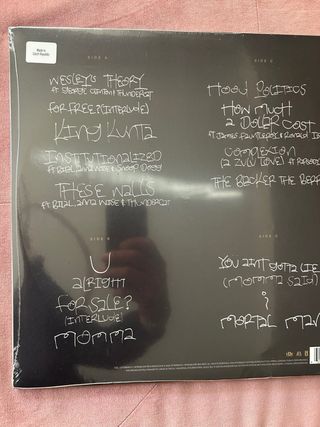 Made in
Czech Republic
SIDE A
WESLEY'S THEORY
ft GEORGE CLINTON & THUNDERCAT
FOR FREE? (INTERLUDE)
KING KUNTA
INSTITUTIONALIZED
ft BILAL, ANNA WISE & SNOOP DOGG
THESE WALLS
ft BILAL, ANNA WISE & THUNDERCAT
SIDE B
U
ALRIGHT
FOR SALE?
(INTERLUDE)
MOMMA
SIDE C
HOOD POLITICS
HOW MUCH
A DOLLAR COST
ft JAMES FAUNTLEROY & RONALD IS
COMPLEXION
(A ZULU LOVE) ft RAPSOD
THE BLACKER THE BERR
SIDE D
YOU AINT GOTTA LIE
(MOMMA SAID)
i
MORTAL MAN